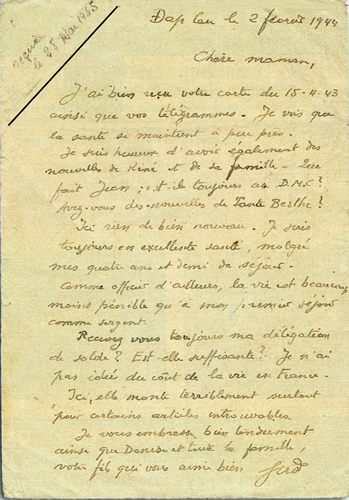 reçue
le 25 Mai 1945
Dap Cau le 2 février 1944
Chère maman,
J'ai bien reçu votre carte du 15-4-43
ainsi que vos télégrammes. Je vois que
la santé se maintient à peu près.
Je suis heureux d'avoir également des
nouvelles de René et de sa famille - Que
fait Jean : est-il toujours au D.M.C?
Avez-vous des nouvelles de Tante Berthe?
Ici rien de bien nouveau. Je suis
toujours en excellente santé, malgré
mes quatre ans et demi de séjour.
Comme officier d'ailleurs, la vie est beaucoup
moins pénible qu'à mon premier séjour
comme sergent.
Recevez vous toujours ma délégation
de solde? Est-elle suffisante? Je n'ai
pas idée du coût de la vie en France.
Ici, elle monte terriblement surtout
pour certains articles introuvables.
Je vous embrasse bien tendrement
ainsi que Denise et toute la famille,
votre fils qui vous aime bien